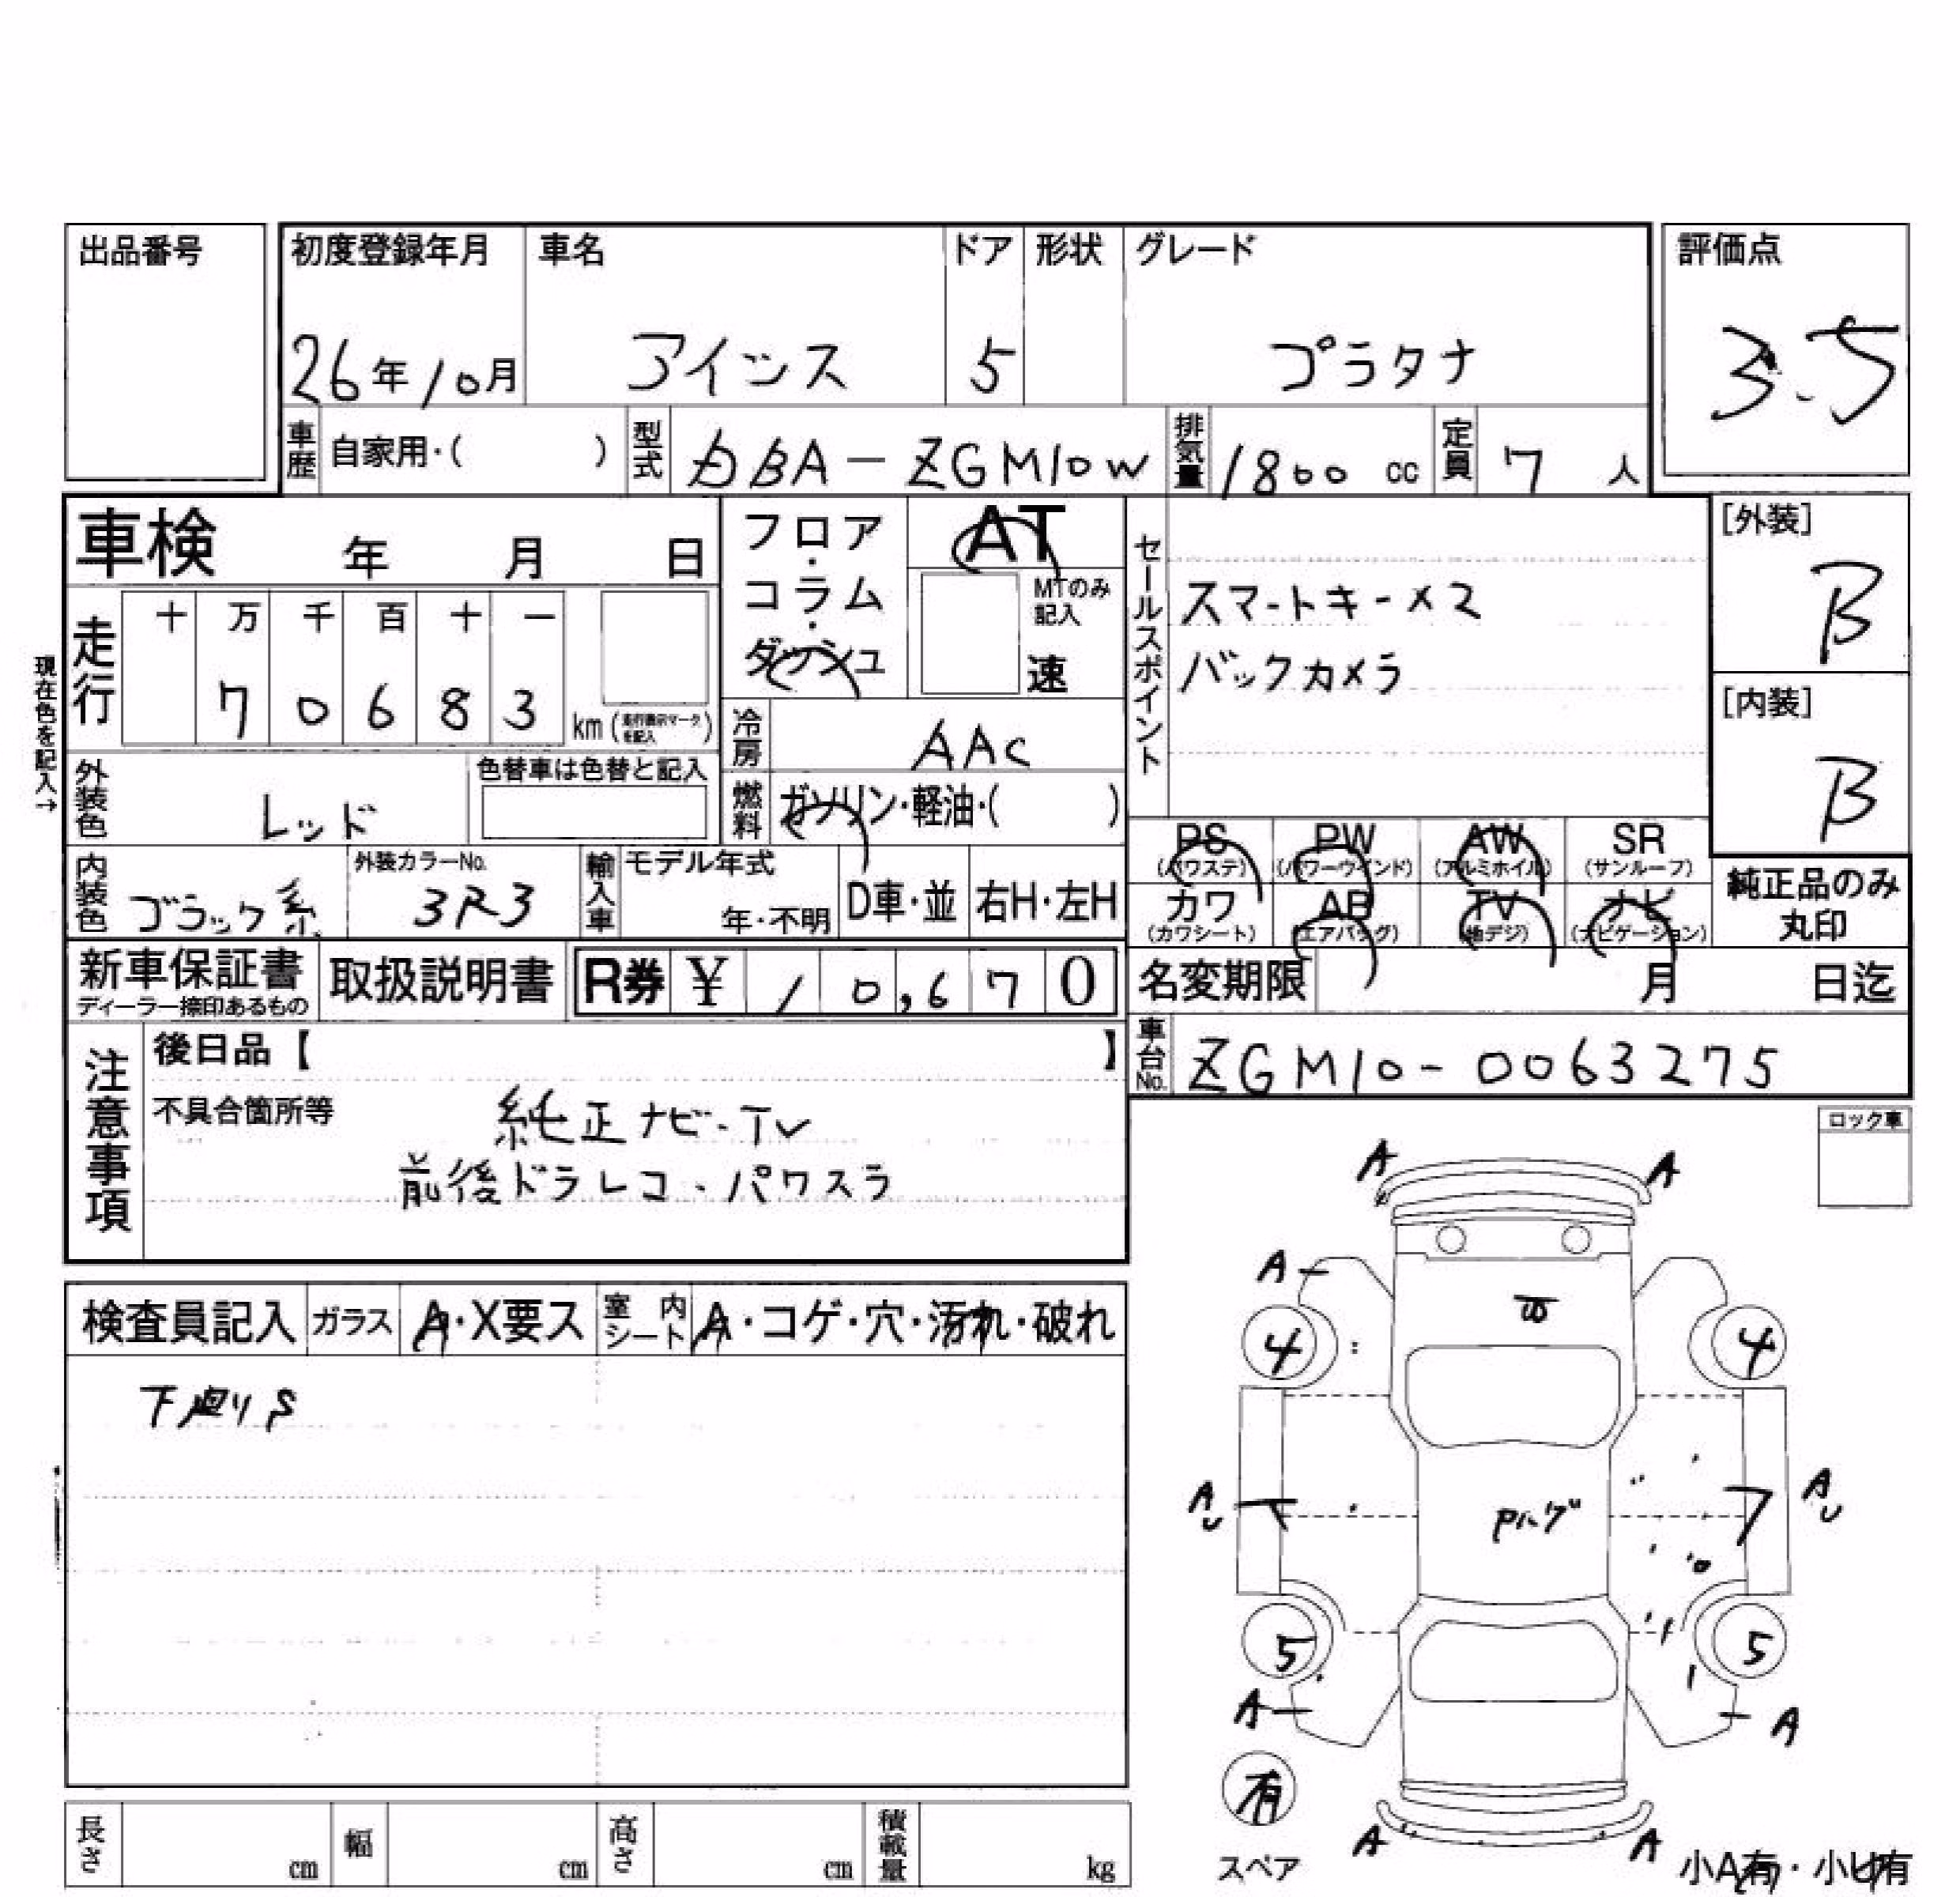 出品番号
初度登録年月 車名 ドア 形状 グレード 評価点
26年10月 アイシス 5 プラタナ 3.5
車歴 自家用・( ) 型式 DBA-ZGM10W 排気量 1800 cc 定員 7 人
車検 年 月 日
フロア・コラム・ダッシュ
AT
MTのみ記入
速
セールスポイント
スマートキー×2
バックカメラ
[外装]
B
[内装]
B
現在色を記入→
走行 十 万 千 百 十 一
7 0 6 8 3 km (走行表示マークを記入)
冷房 AAC
外装色 レッド 色替車は色替と記入
燃料 ガソリン・軽油・( )
PS (パワステ) PW (パワーウインド) AW (アルミホイル) SR (サンルーフ)
カワ (カワシート) AB (エアバッグ) TV (地デジ) ナビ (ナビゲーション)
純正品のみ
丸印
内装色 ブラック系 外装カラーNo. 3R3 輸入車 モデル年式 年・不明 D車・並 右H・左H
新車保証書 ディーラー捺印あるもの 取扱説明書 R券 ¥ 10,670
名変期限 月 日迄
車台No. ZGM10-0063275
注意事項
後日品【 】
不具合箇所等 純正ナビ・TV
前後ドラレコ・パワスラ
ロック車
検査員記入 ガラス A・X要ス 室内シート A・コゲ・穴・汚れ・破れ
下廻りS
A A
A
4 4
AU AU
5 5
A A
有
スペア
A A
小A有・小U有
長さ cm 幅 cm 高さ cm 積載量 kg